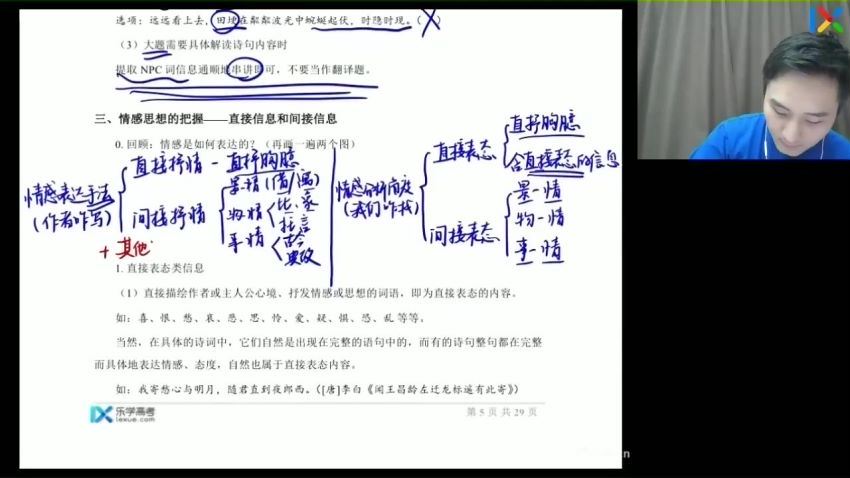 选项：远远看上去，田埂在粼粼波光中蜿蜒起伏，时隐时现。（ ）
（3）大题需要具体解读诗句内容时
提取 NPC 词信息通顺地串讲即可，不要当作翻译题。
三、情感思想的把握——直接信息和间接信息
0. 回顾：情感是如何表达的？（再画一遍两个图）
情感表达手法
（作者咋写）
+ 其他
直接抒情 - 直抒胸臆
间接抒情
景-情（借/寓）
物-情
比、象
托言
事-情
古今
典故
情感分析角度
（我们咋找）
直接表态
直抒胸臆
含直接表态的信息
间接表态
景-情
物-情
事-情
1. 直接表态类信息
（1）直接描绘作者或主人公心境、抒发情感或思想的词语，即为直接表态的内容。
如：喜、恨、愁、哀、悲、思、怜、爱、疑、惧、恐、乱 等等。
当然，在具体的诗词中，它们自然是出现在完整的语句中的，而有的诗句整句都在完整
而具体地表达情感、态度，自然也属于直接表态内容。
如：我寄愁心与明月，随君直到夜郎西。（[唐]李白《闻王昌龄左迁龙标遥有此寄》）
乐学高考
lexue.com
第 5 页 共 29 页